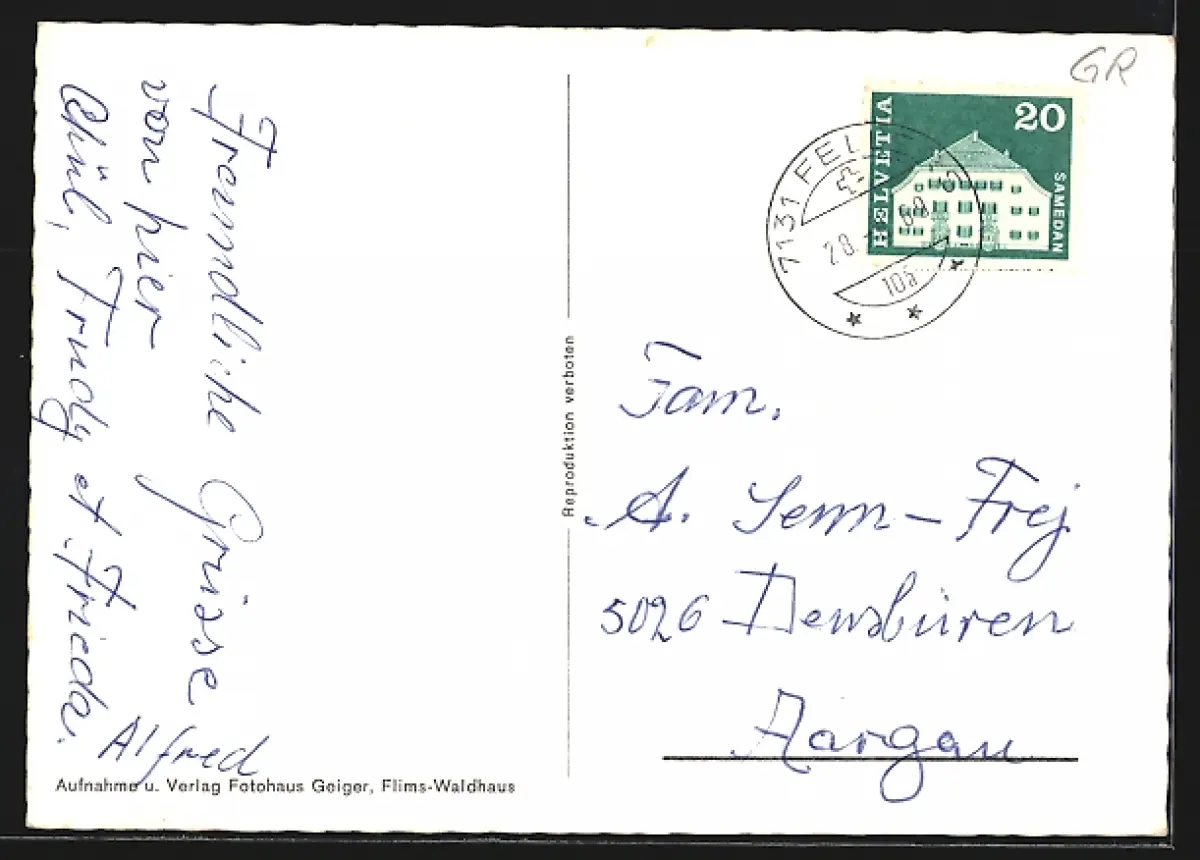 GR
HELVETIA
20
SAMEDAN
7131 FEL
28. 69
10a
Freundliche Grüsse
von hier
Trudy et Frieda.
Alfred
Reproduktion verboten
Fam.
A. Senn-Frej
5026 Densbüren
Aargau
Aufnahme u. Verlag Fotohaus Geiger, Flims-Waldhaus